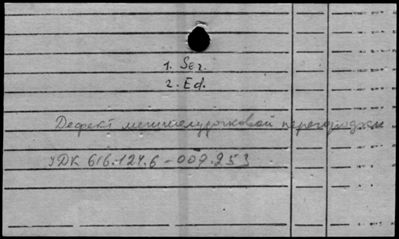 1. Ser.
2. Ed.
Дефект межжелудочковой перегородки
УДК 616.124.6-009.253